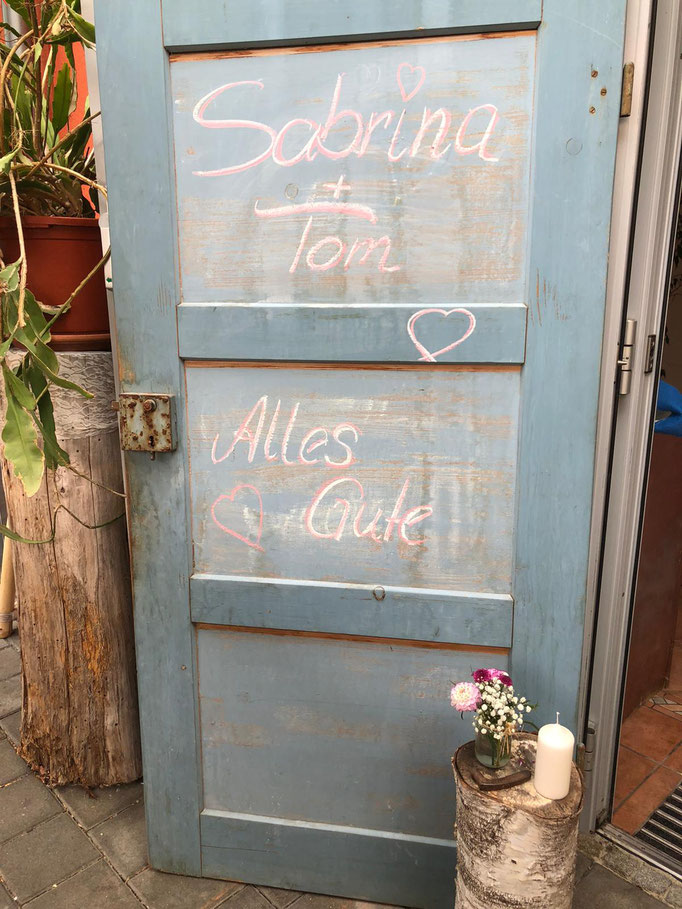 Sabrina
+
Tom
Alles
Gute